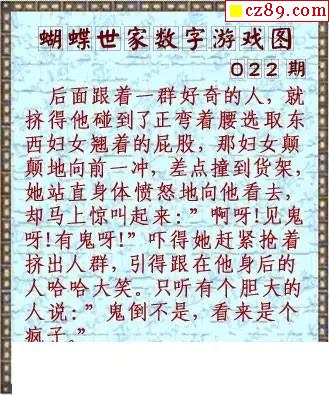 cz89.com
蝴蝶世家数字游戏图
022 期
后面跟着一群好奇的人，就
挤得他碰到了正弯着腰选取东
西妇女翘着的屁股，那妇女颠
颠地向前一冲，差点撞到货架，
她站直身体愤怒地向他看去，
却马上惊叫起来：”啊呀!见鬼
呀!有鬼呀!”吓得她赶紧抢着
挤出人群，引得跟在他身后的
人哈哈大笑。只听有个胆大的
人说：”鬼倒不是，看来是个
疯子。”